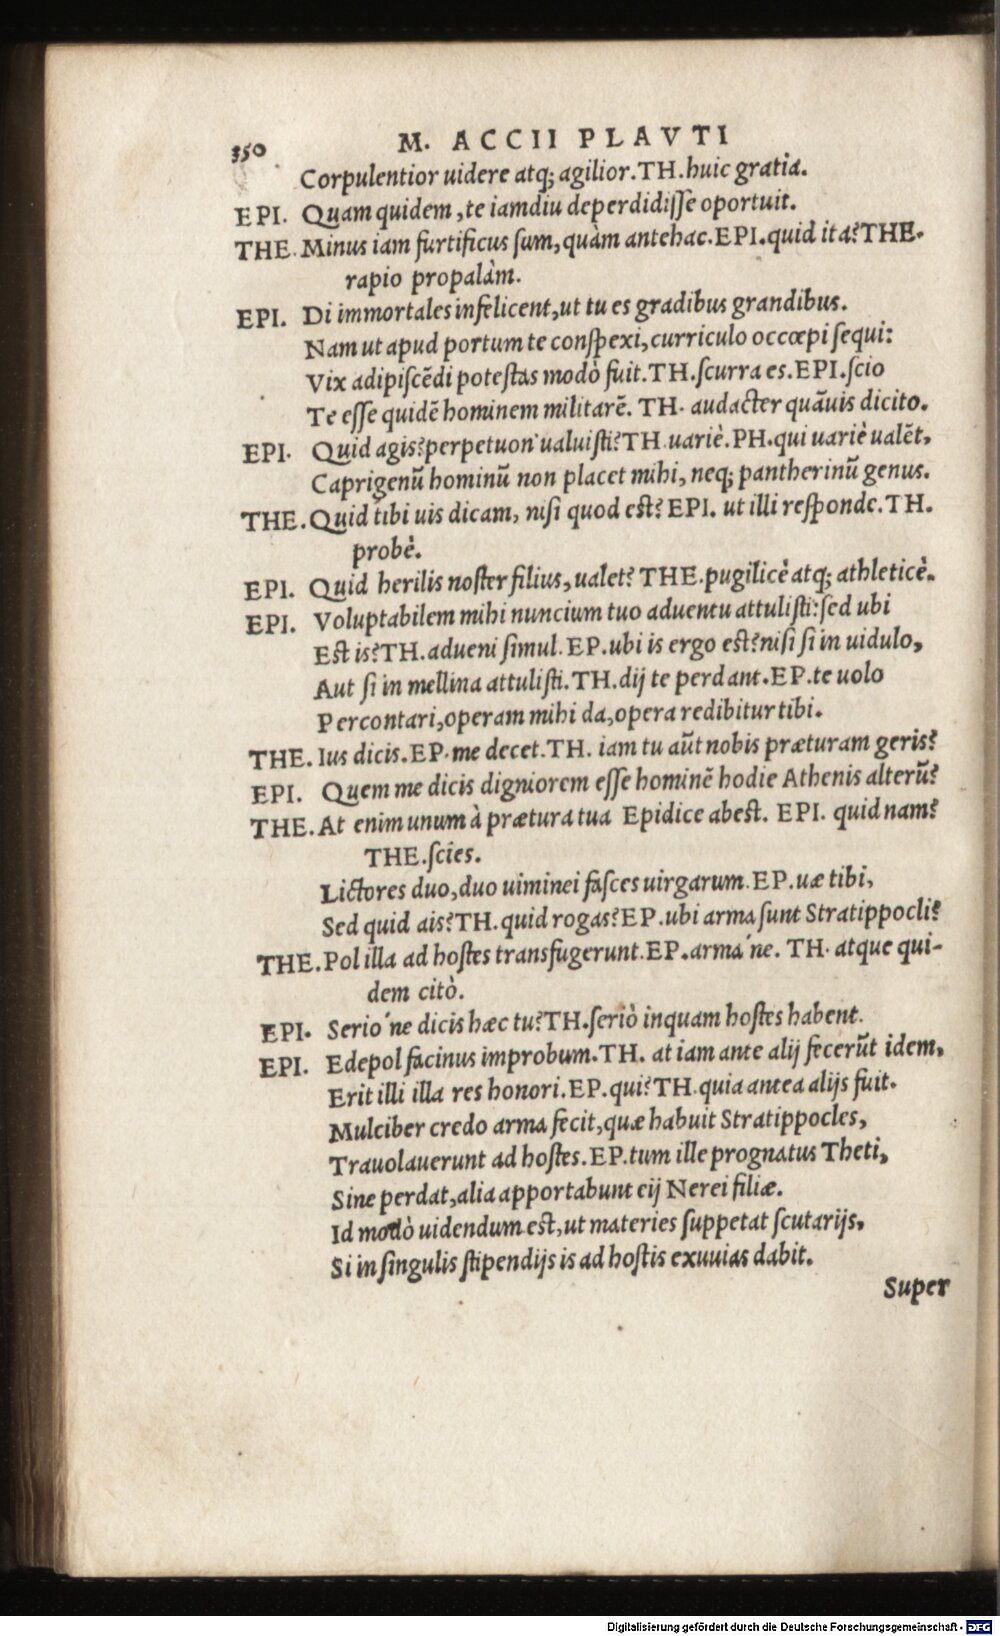 350 M. ACCII PLAVTI
Corpulentior uidere atq; agilior. TH. huic gratia.
EPI. Quam quidem, te iamdiu deperdidisse oportuit.
THE. Minus iam furtificus sum, quàm antehac. EPI. quid ita? THE.
rapio propalàm.
EPI. Di immortales infelicent, ut tu es gradibus grandibus.
Nam ut apud portum te conspexi, curriculo occœpi sequi:
Vix adipiscēdi potestas modò fuit. TH. scurra es. EPI. scio
Te esse quidē hominem militarē. TH. audacter quāuis dicito.
EPI. Quid agis? perpetuon' ualuisti? TH. uariè. PH. qui uariè ualēt,
Caprigenū hominū non placet mihi, neq; pantherinū genus.
THE. Quid tibi uis dicam, nisi quod est? EPI. ut illi responde. TH.
probè.
EPI. Quid herilis noster filius, ualet? THE. pugilicè atq; athleticè.
EPI. Voluptabilem mihi nuncium tuo aduentu attulisti: sed ubi
Est is? TH. adueni simul. EP. ubi is ergo est? nisi si in uidulo,
Aut si in mellina attulisti. TH. dij te perdant. EP. te uolo
Percontari, operam mihi da, opera redibitur tibi.
THE. Ius dicis. EP. me decet. TH. iam tu aūt nobis præturam geris?
EPI. Quem me dicis digniorem esse hominē hodie Athenis alterū?
THE. At enim unum à prætura tua Epidice abest. EPI. quid nam?
THE. scies.
Lictores duo, duo uiminei fasces uirgarum. EP. uæ tibi,
Sed quid ais? TH. quid rogas? EP. ubi arma sunt Stratippocli?
THE. Pol illa ad hostes transfugerunt. EP. arma'ne. TH. atque qui-
dem citò.
EPI. Serio'ne dicis hæc tu? TH. seriò inquam hostes habent.
EPI. Edepol facinus improbum. TH. at iam ante alij fecerūt idem,
Erit illi illa res honori. EP. qui? TH. quia antea alijs fuit.
Mulciber credo arma fecit, quæ habuit Stratippocles,
Trauolauerunt ad hostes. EP. tum ille prognatus Theti,
Sine perdat, alia apportabunt eij Nerei filiæ.
Id modò uidendum est, ut materies suppetat scutarijs,
Si in singulis stipendijs is ad hostis exuuias dabit.
Super
Digitalisierung gefördert durch die Deutsche Forschungsgemeinschaft - DFG